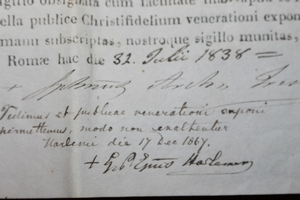 sigillo obsignata cum facultate
ella publice Christifidelium venerationi expon
manu subscriptas, nostroque sigillo munitas,
Romæ hac die 31. Julii 1838
+
Vidimus et publicae venerationi exponi
permittimus, modo non exaltentur
Harlemii die 17 Dec 1867.
+ G. P. Epus Harlemen